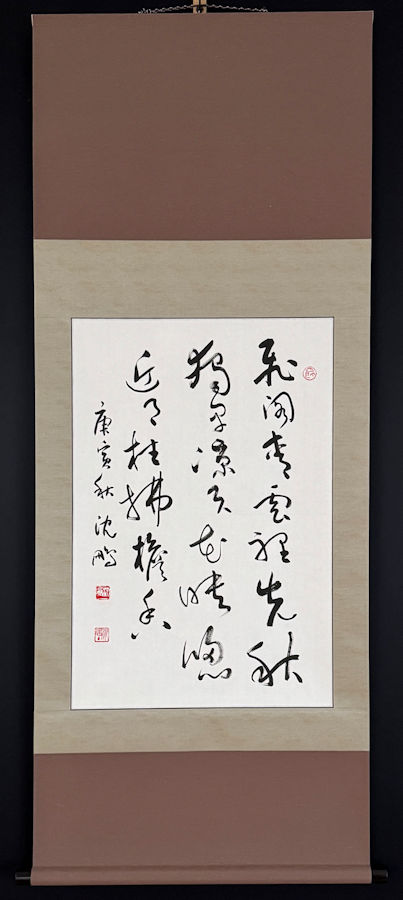 飛閣青霞裡先秋
獨早涼天花映牕
近月桂拂檐香
庚寅秋沈鵬